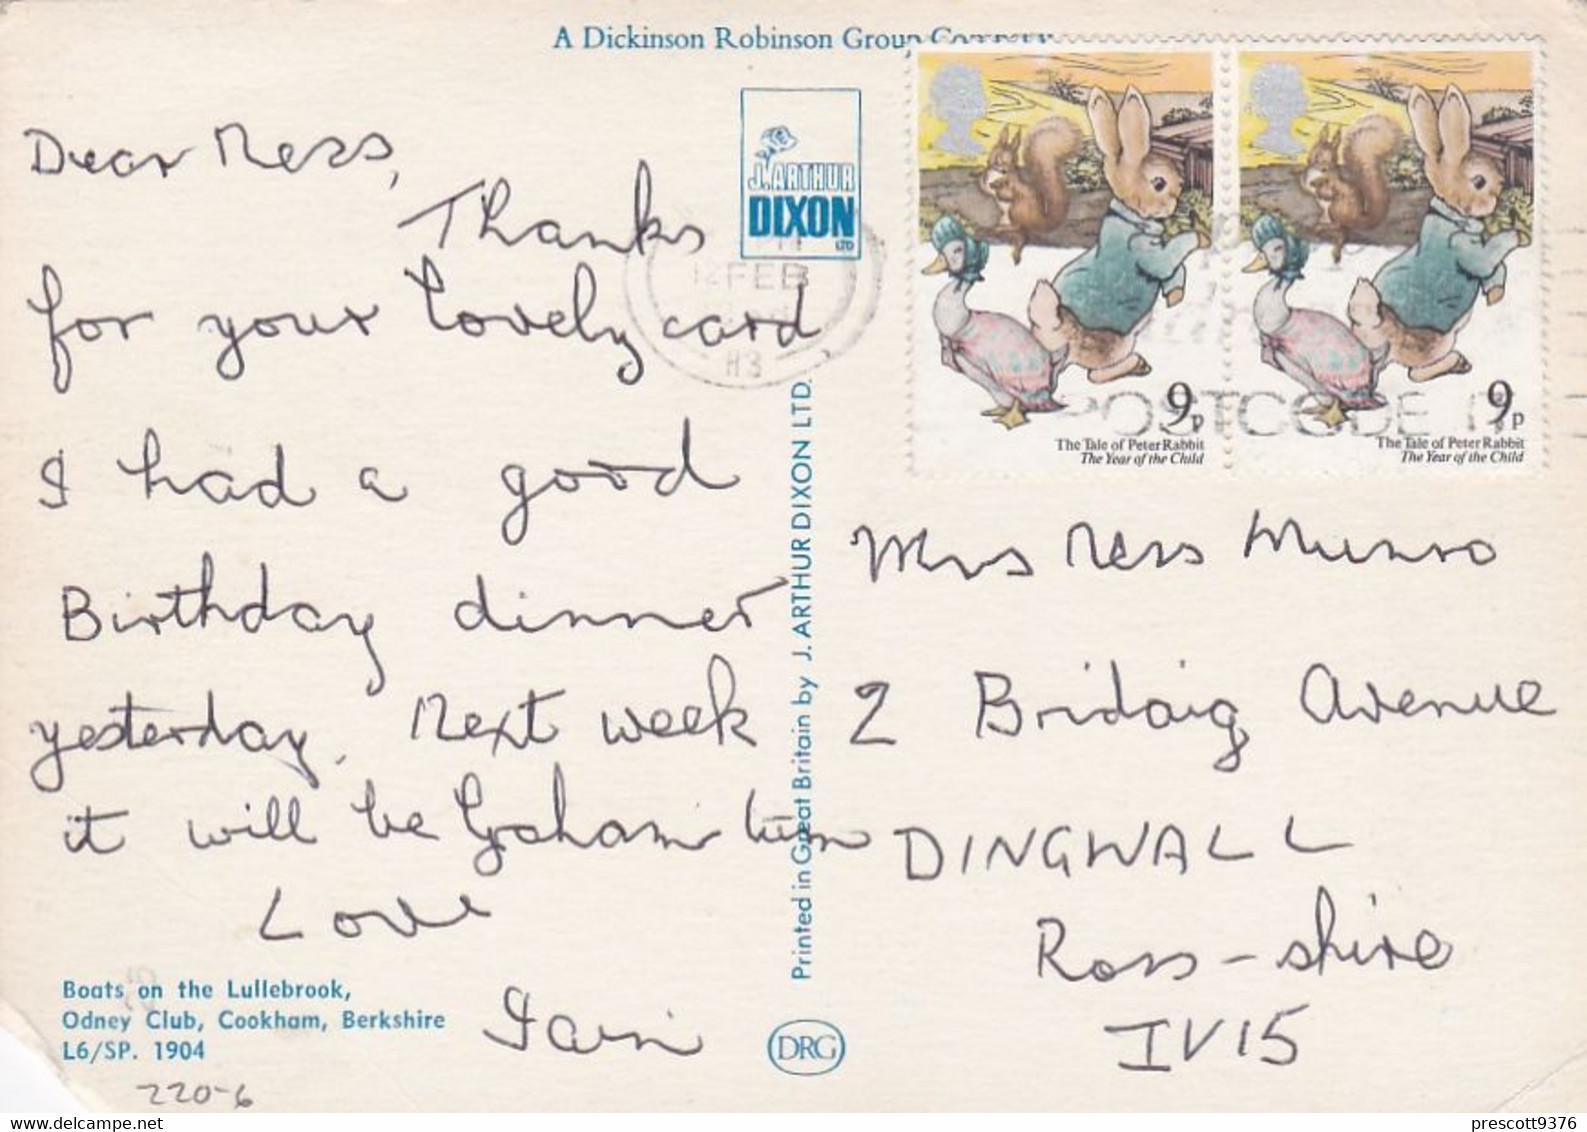 A Dickinson Robinson Group Company
J. ARTHUR
DIXON
LTD
12 FEB
H3
POSTCODE IT
9p
The Tale of Peter Rabbit
The Year of the Child
9p
The Tale of Peter Rabbit
The Year of the Child
Dear Ness,
Thanks
for your lovely card
I had a good
Birthday dinner
yesterday. Next week
it will be Graham turn
Love
Iain
Boats on the Lullebrook,
Odney Club, Cookham, Berkshire
L6/SP. 1904
220-6
Printed in Great Britain by J. ARTHUR DIXON LTD.
DRG
Mrs Ness Munro
2 Bridaig Avenue
DINGWALL
Ross-shire
IV15
prescott9376